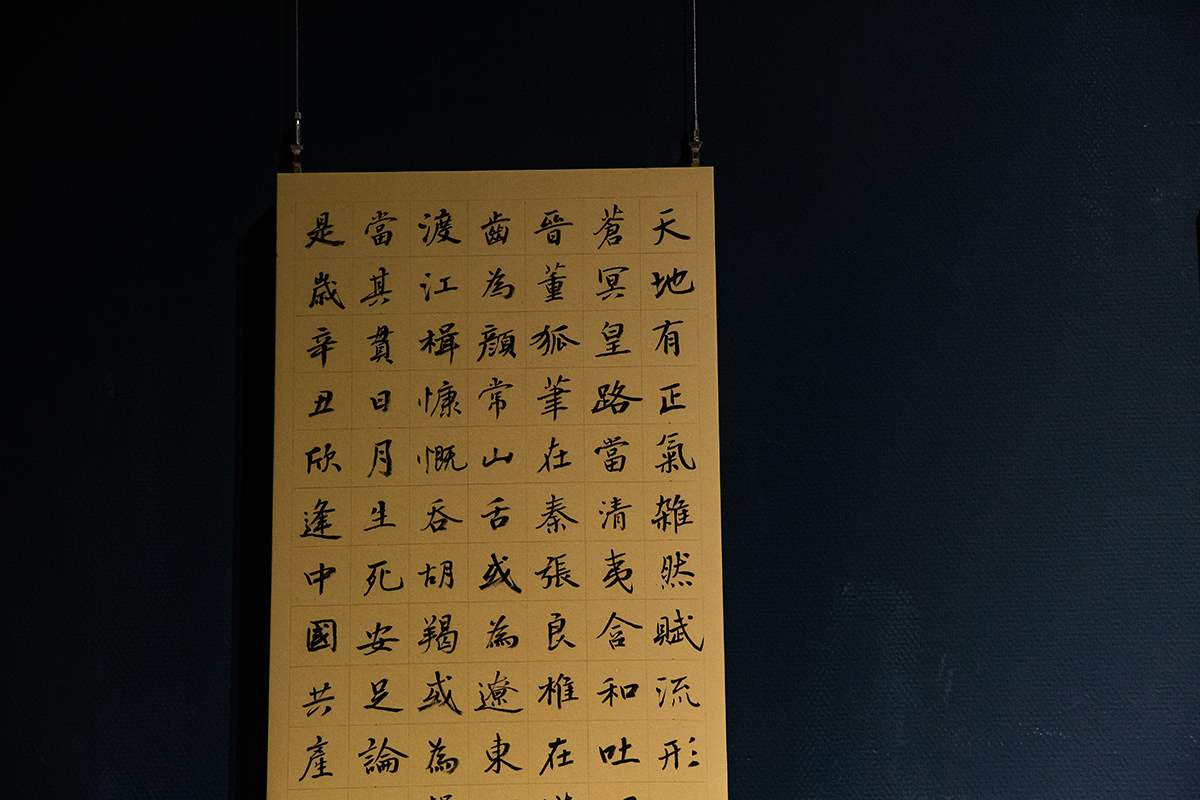 天地有正氣雑然賦流形
蒼冥皇路當清夷含和吐
晉董狐筆在秦張良椎在
齒為顔常山舌或為遼東
渡江楫慷慨吞胡羯或為
當其貫日月生死安足論
是歲辛丑欣逢中國共產